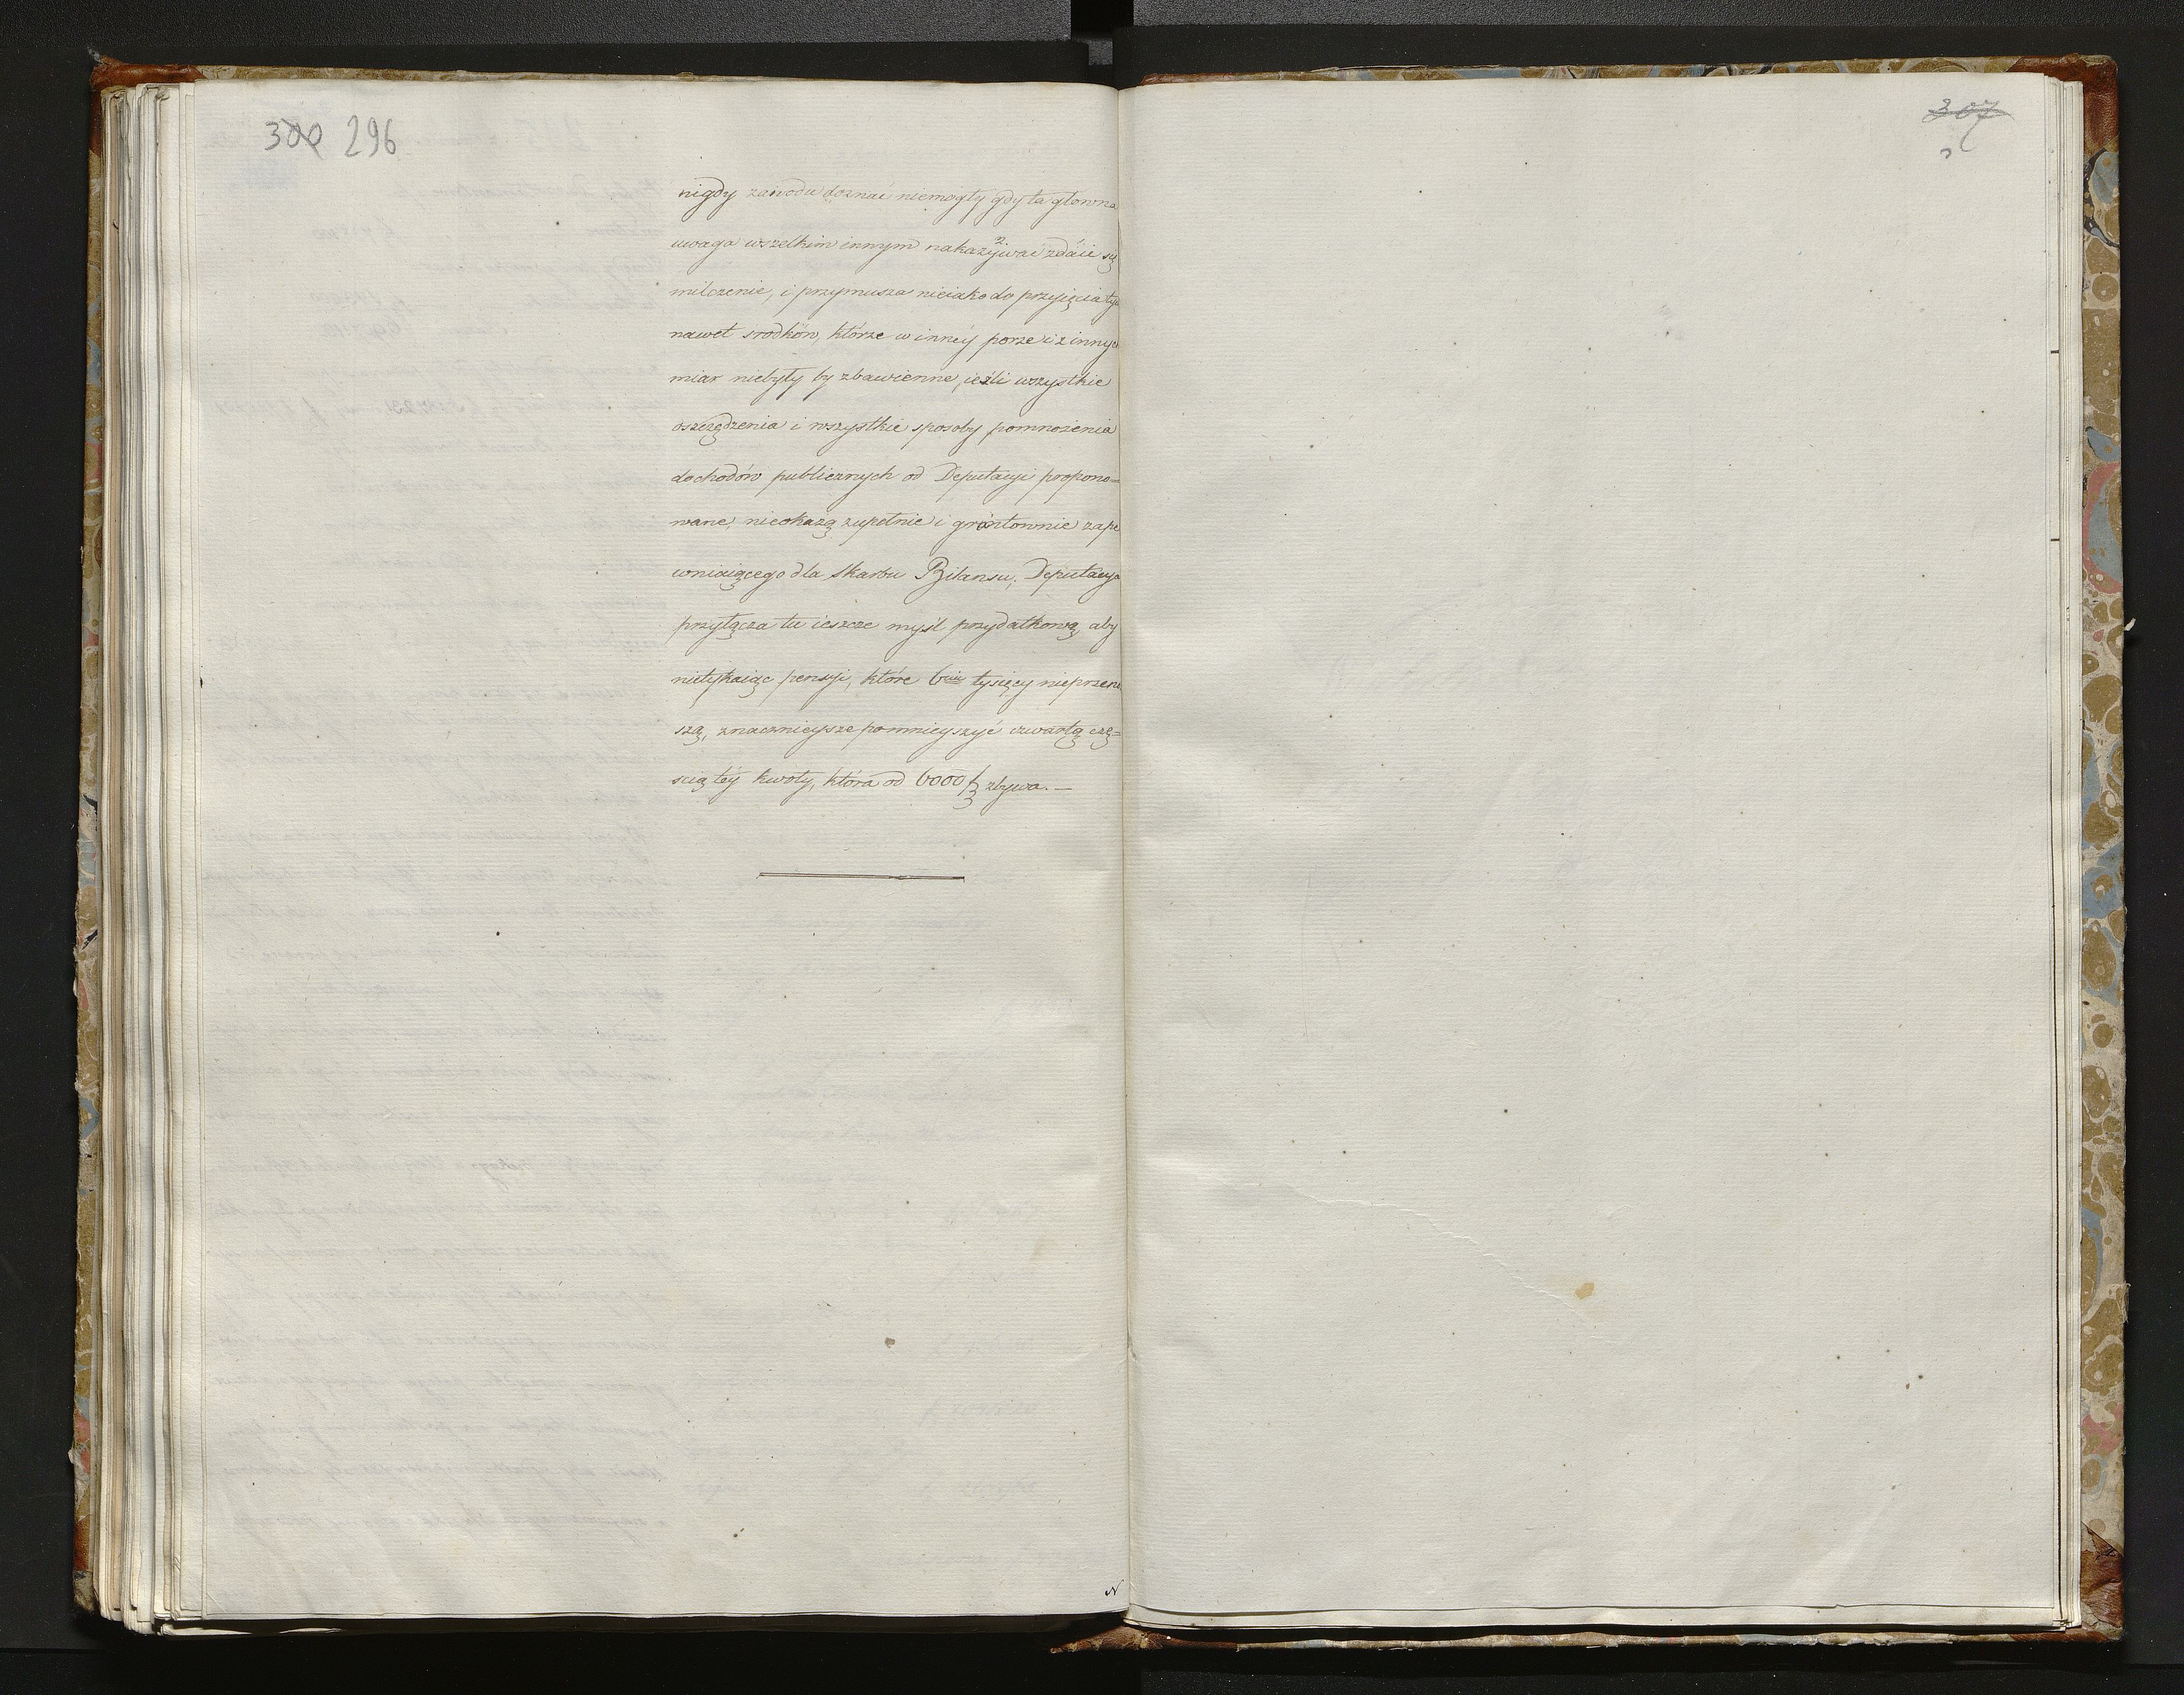 300 296
nigdy zawodu doznać niemogły gdy ta głowna
uwaga wszelkim innym nakazywać zdaie się
milczenie, i przymusza nieiako do przyięcia tych
nawet srodków, którze w innéy porze i z innych
miar niebyły by zbawienne, ieżli wszystkie
oszczędzenia i wszystkie sposoby pomnożenia
dochodów publicznych od Deputacyi propono=
wane, nieokażą zupełnie i grontownie zape
wniaiącego dla Skarbu Bilansu; Deputacya
przyłącza tu ieszcze myśl przydatkową, aby
nietykaiąc pensyi, które 6ciu tysięcy nieprzeno
szą, znacznieysze pomnieyszyć czwartą czę=
scią téy kwoty, która od 6000 f zbywa. —
N
307